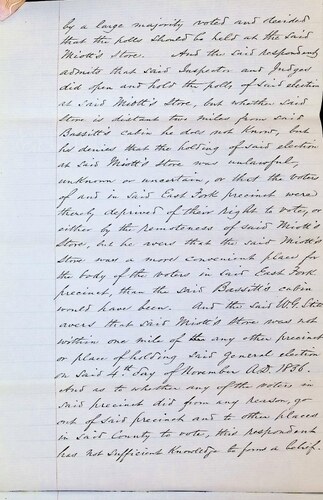 by a large majority voted and decided
that the polls should be held at the said
Miott's Store. And the said respondent
admits that said Inspector and Judges
did open and hold the polls of said election
at said Miott's Store, but whether said
Store is distant two miles from said
Bassitt's cabin he does not know, but
he denies that the holding of said election
at said Miott's Store was unlawful,
unknown or uncertain, or that the voters
of and in said East Fork precinct were
thereby deprived of their right to vote, or
either by the remoteness of said Miott's
Store, but he avers that the said Miott's
Store was a more convenient place for
the body of the voters in said East Fork
precinct, than the said Bassitt's cabin
would have been. And the said W.G.
avers that said Miott's Store was not
within one mile of any other precinct
or place of holding said general election
on said 4th day of November A.D. 1856.
And as to whether any of the voters in
said precinct did from any reason, go
out of said precinct and to other places
in said County to vote, this respondent
has not sufficient knowledge to form a belief.